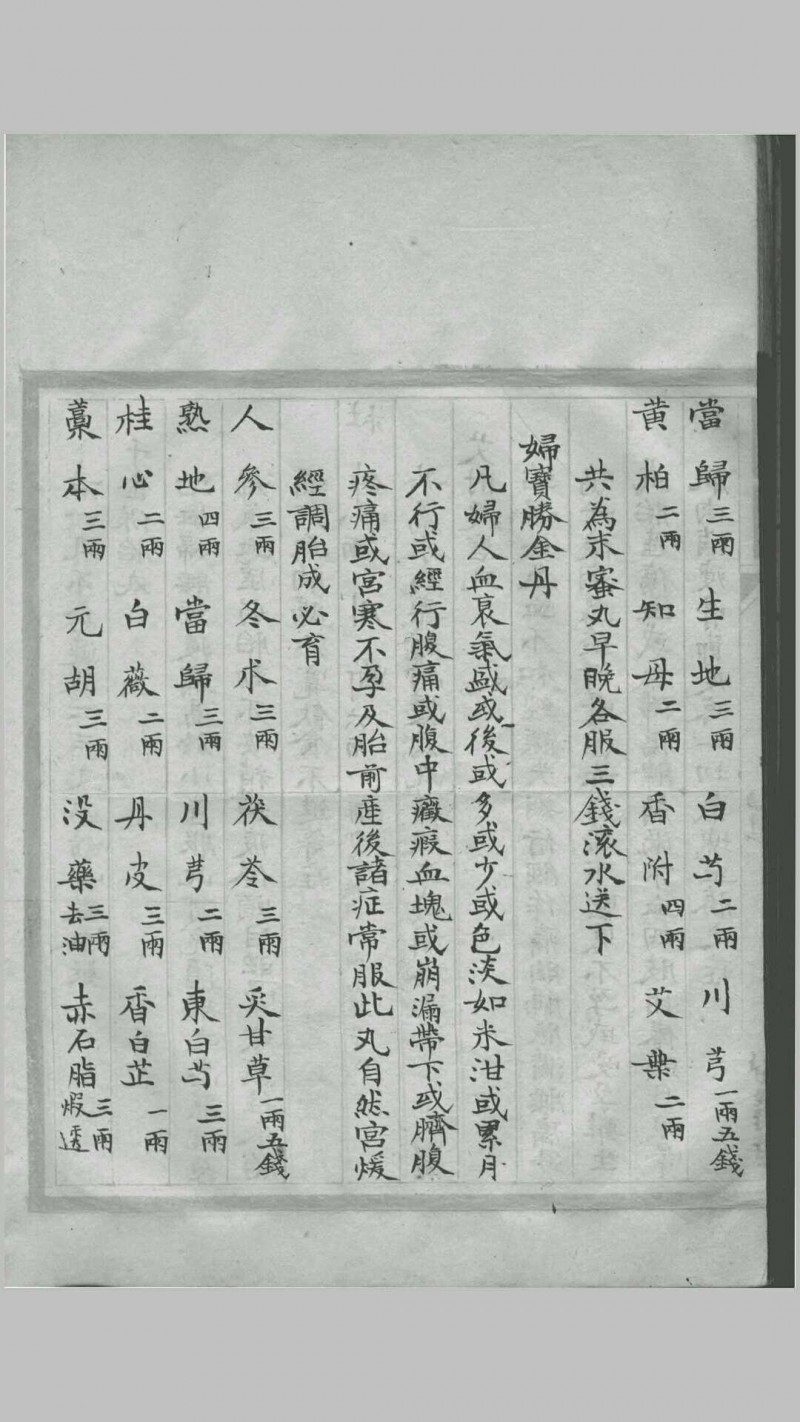 當歸三兩 生地三兩 白芍二兩 川芎一兩五錢
黄柏二兩 知母二兩 香附四兩 艾葉二兩
共為末蜜丸早晚各服三錢滚水送下
婦寶勝金丹
凡婦人血衰氣盛或後或多或少或色淡如米泔或累月
不行或經行腹痛或腹中癥瘕血塊或崩漏帶下或臍腹
疼痛或宮寒不孕及胎前産後諸症常服此丸自然宮煖
經調胎成必育
人參三兩 冬朮三兩 茯苓三兩 炙甘草一兩五錢
熟地四兩 當歸三兩 川芎二兩 東白芍三兩
桂心二兩 白薇二兩 丹皮三兩 香白芷一兩
藁本三兩 元胡三兩 没藥三兩去油 赤石脂三兩煆透